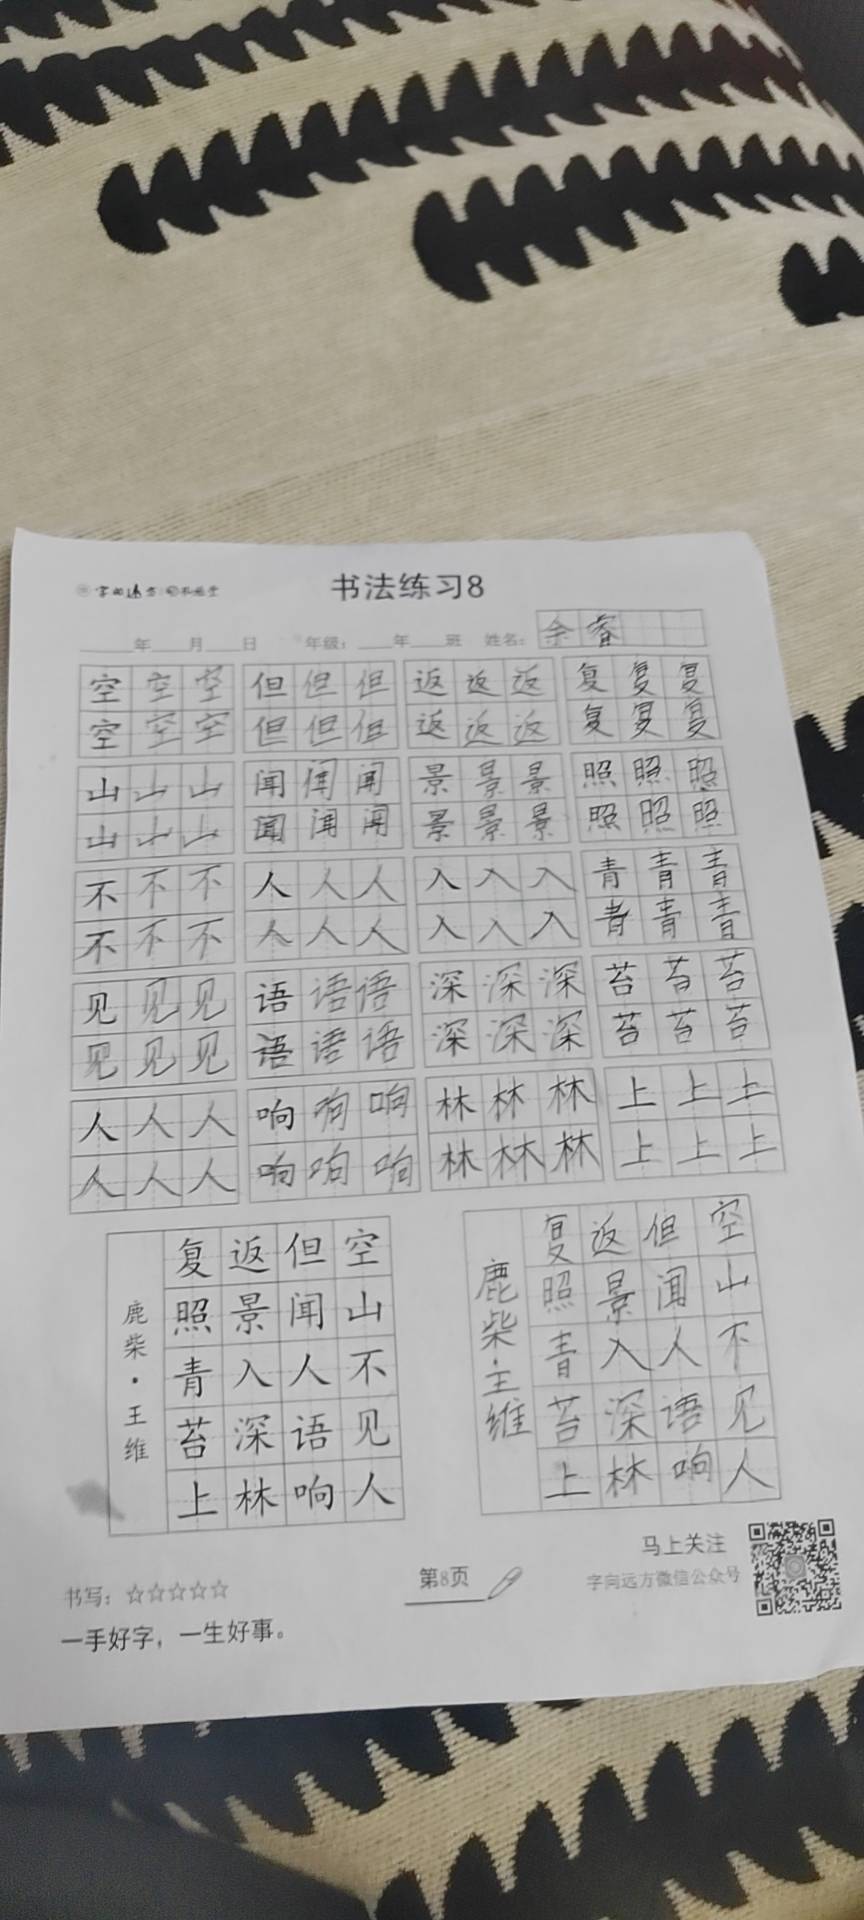 书法练习8
年 月 日 年级： 年 班 姓名：余睿
空空空 但但但 返返返 复复复
空空空 但但但 返返返 复复复
山山山 闻闻闻 景景景 照照照
山山山 闻闻闻 景景景 照照照
不不不 人人人 入入入 青青青
不不不 人人人 入入入 青青青
见见见 语语语 深深深 苔苔苔
见见见 语语语 深深深 苔苔苔
人人人 响响响 林林林 上上上
人人人 响响响 林林林 上上上
空山不见人
但闻人语响
返景入深林
复照青苔上
鹿柴·王维
空山不见人
但闻人语响
返景入深林
复照青苔上
鹿柴·王维
书写：☆☆☆☆☆
一手好字，一生好事。
第8页
马上关注
字向远方微信公众号